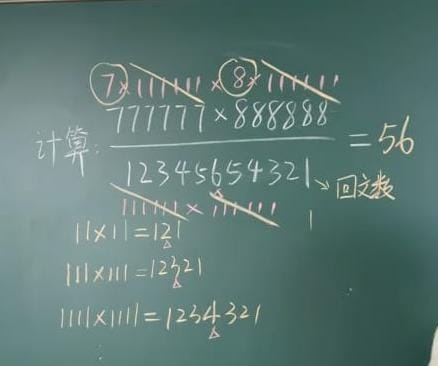 7×111111×8×111111
777777×888888
计算: =56
12345654321 回文数
111111×111111
11×11=121
111×111=12321
1111×1111=1234321